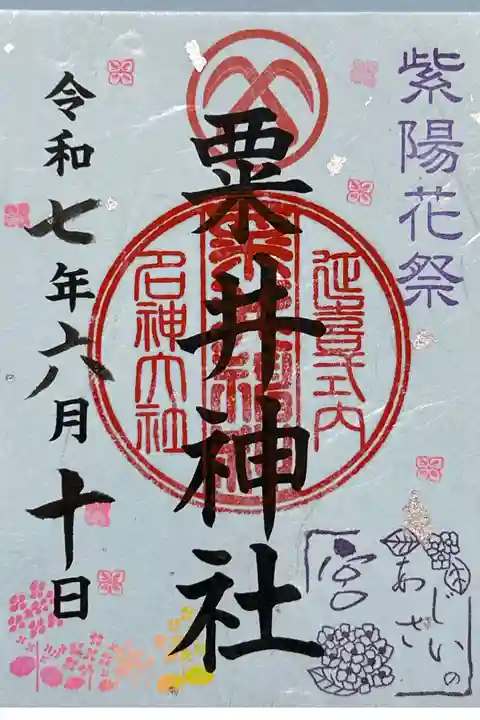 紫陽花祭
粟井神社
延喜式内
粟井神社
名神大社
令和七年六月十日
あじさいの
宮